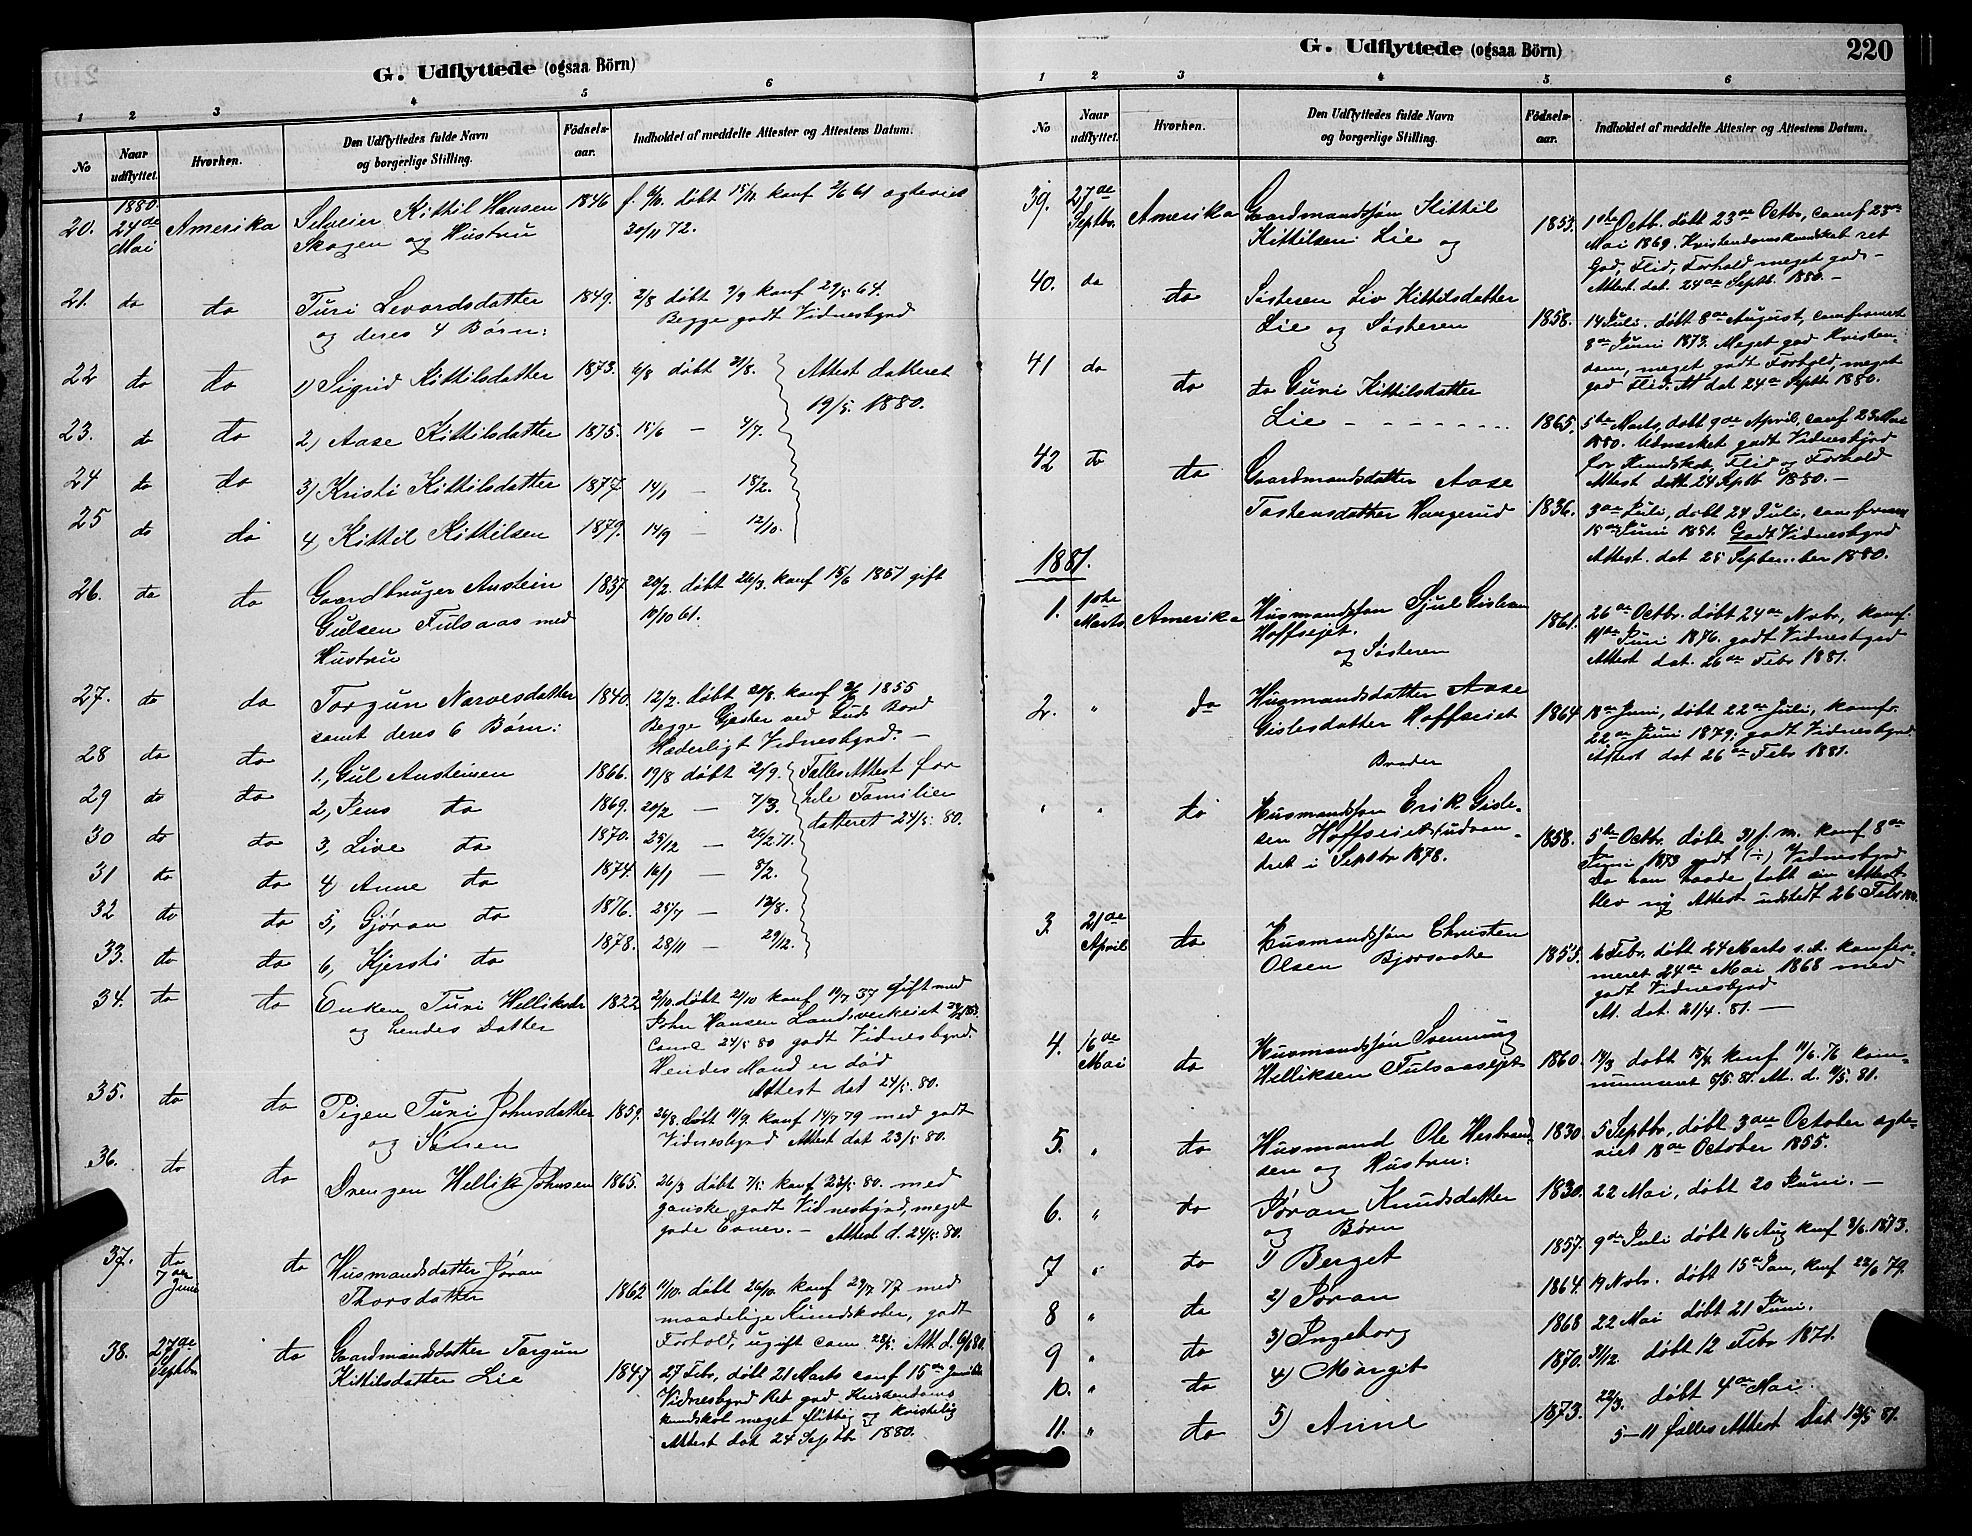 G. Udflyttede (ogsaa Börn)
1 2 3 4 5 6
No Naar udflyttet. Hvorhen. Den Udflyttedes fulde Navn og borgerlige Stilling. Födsels-aar. Indholdet af meddelte Attester og Attestens Datum.
1880.
20. 24de Mai Amerika Selveier Kittil Hansen 1846 f. døbt 15/11 konf 2/6 61 ægteviet
Skogen og Hustru 20/11 72.
21. do do Turi Levordsdatter 1849. 2/8 døbt 2/9 konf 29/5 64.
og deres 4 Børn: Begge godt Vidnesbyrd
22 do do 1) Sigrid Kittilsdatter 1873. 6/8 døbt 31/8. Attest datteret
19/5. 1880.
23. do do 2) Aase Kittilsdatter 1875. 15/6 — 4/7.
24 do do 3) Kristi Kittilsdatter 1877 14/1 — 18/2.
25 do do 4) Kittil Kittilsen 1879. 14/9 — 12/10.
26. do do Gaardbruger Anstein 1837 20/2. døbt 26/3. konf 15/6 1851 gift
Gulsen Fulsaas med 10/10 61.
Hustru
27. do do Torgun Narvesdatter 1840. 12/7. døbt 20/8. konf 1855
samt deres 6 Børn: Begge Gjester ved Guds Bord
Hæderligt Vidnesbyrd. —
28 do do 1, Gul Ansteinsen 1866. 19/8 døbt 2/9. Fælles Attest for
29 do do 2, Jens do 1869. 20/2 — 7/3. hele Familien
30 do do 3, Live do 1870. 25/12 — 26/2 71. datteret 24/5. 80.
31 do do 4) Anne do 1874. 16/1 — 8/2.
32 do do 5, Gjøran do 1876. 25/7 — 13/8.
33. do do 6, Kjersti do 1878. 28/11 — 29/12.
34. do do Enken Turi Helliksdr 1822 2/10. døbt 21/10 konf 37 Gift med
og hendes Datter John Hansen Landsverkeiet
24/5 80 godt Vidnesbyrd.
Hendes Mand er død
Attest dat 24/5. 80.
35. do do Pigen Turi Johnsdatter 1859. 26/8 døbt 11/9. konf 14/7 79 med godt
og Sønen Vidnesbyrd Attest dat 23/5 80.
36. do do Drengen Hellik Johnsen 1865. 26/3 døbt 7/5. konf 23/5. 80. med
ganske godt Vidnesbyrd, meget
gode Evner. — Attest d. 24/5. 80.
37. do 7de Juni do Husmandsdatter Jøran
Thorsdatter 1862 11/10. døbt 26/10. konf 29/7 77 med
maadelige Kundskaber, godt
Forhold, ugift com. 23/5. Att. d. 6/6 80.
38. 27de Septbr do Gaardmandsdatter Torgun
Kittilsdatter Lie 1847 27 Febr, døbt 21 Marts conf 15de Juni
Vidnesbyrd Ret god Kristendoms
kundskab meget flittig og kristelig
Attest dat 24 Septbr 1880.
G. Udflyttede (ogsaa Börn) 220
1 2 3 4 5 6
No Naar udflyttet Hvorhen. Den Udflyttedes fulde Navn og borgerlige Stilling. Födsels-aar. Indholdet af meddelte Attester og Attestens Datum.
39. 27de Septbr. Amerika Gaardmandssøn Kittil
Kittilsen Lie og 1853. 1ste Octb. døbt 23de Octbr, conf 23de
Mai 1869. Kristendomskundskab ret
God, Flid, Forhold meget god —
Attest dat. 24de Septb. 1880. —
40. do do Søsteren Liv Kittilsdatter
Lie og Søsteren 1858. 14 Juli. døbt 8de August, confirmert
8de Juni 1873. Meget god Kristen-
dom, meget godt Forhold, meget
god Flid. At dat 24de Septb 1880.
41 do do do Guni Kittilsdatter
Lie - - - - - - - 1865. 5te Marts, døbt 9de April, conf 23 Mai
1880. Udmærket godt Vidnesbyrd
for Kundskab, Flid og Forhold
Attest datt 24 Septb 1880. —
42 do do Gaardmandsdatter Aase
Tostensdatter Haugerud 1836. 3de Juli, døbt 24 Juli, confirm
15de Juni 1851. Godt Vidnesbyrd
Attest. dat 25 September 1880.
1881.
1. 1ste Marts Amerika Husmandssøn Gjul Gislesen
Hoffsejet. 1861. 26de Octbr. døbt 24de Novbr, konf.
og Søsteren 11de Juni 1876. godt Vidnesbyrd
Attest dat. 26de Febr 1881.
2. " do Husmandsdatter Aase
Gislesdatter Hoffseiet 1864 18de Juni, døbt 22de Juli, konf.
22de Juni 1879; godt Vidnesbyrd
Broder Attest dat 26de Febr 1881.
" " do Husmandssøn Erik Gisle-
sen Hoffseiet udvan- 1858. 5te Octbr. døbt 31/ f. m. konf 8de
dret i Septbr 1878. Juni 1873 godt (÷) Vidnesbyrd
Da han havde tabt sin Attest
blev ny Attest udstedt 26 Febr
3. 21de April do Husmandssøn Christen
Olsen Bjørsaate 1853. 6 Febr, døbt 24 Marts s.A. konfir-
meret 24de Mai 1868 med
godt Vidnesbyrd
At. dat. 21/4. 81. —
4. 16de Mai do Husmandssøn Svenung
Helliksen Fulsaasejet 1860. døbt konf 11/6. 76 kom-
muniseret 81. At. d. 81.
5. " do Husmand Ole Hestrand- 1830. 5 Septbr, døbt 3die October ægte-
sen og Hustru: viet 18de October 1855.
6. " do Jøran Knudsdatter 1830. 22 Mai, døbt 20 Juni. —
og Børn
7 " do 1) Berget 1857. 9de Juli døbt 16 Aug konf 2/6. 1873.
8 " do 2) Jøran 1864. 19 Novbr. døbt 15de Jan, konf 22/6 79.
9 " do 3) Ingeborg 1868 22 Mai døbt 21 Juni.
10. " do 4) Margit 1870. 31/12 døbt 12 Febr 1871.
11. " do 5) Anne 1873. 22/3. døbt 4de Mai.
5–11 fælles Attest dat 13/5 81.